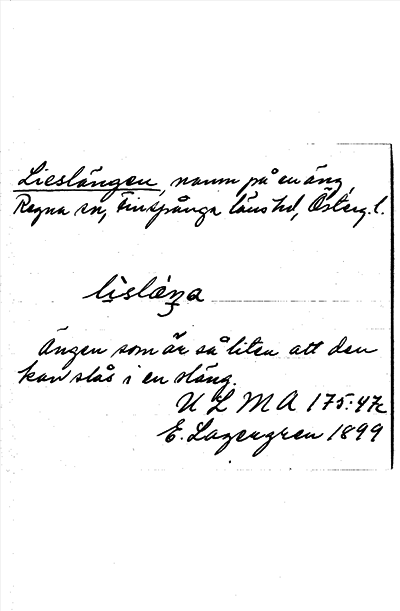 Lieslängen, namn på en äng,
Regna sn, Finspånga läns hd, Österg. l.
lislæŋa
Ängen som är så liten att den
kan slås i en släng.
U L M A 175:47c
E. Lagergren 1899